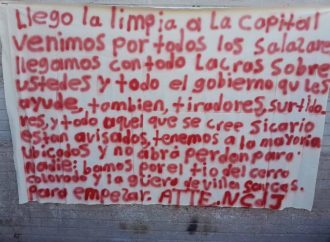 Llego la limpia a La capital
venimos por todos los Salazar
llegamos con todo Lacras Sobre
ustedes y todo el gobierno qu les
ayude, tambien, tiradores, surtido
res, y todo aquel que se cree Sicario
estan avisados, tenemos a la mayoria
ubicados y no abrá perdon para
nadie: bamos por el tio del carro
colorado y la güera de villa sauces.
Para empezar. ATTE. NCdJ